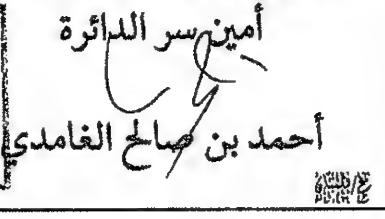 أمين سر الدائرة
أحمد بن صالح الغامدي